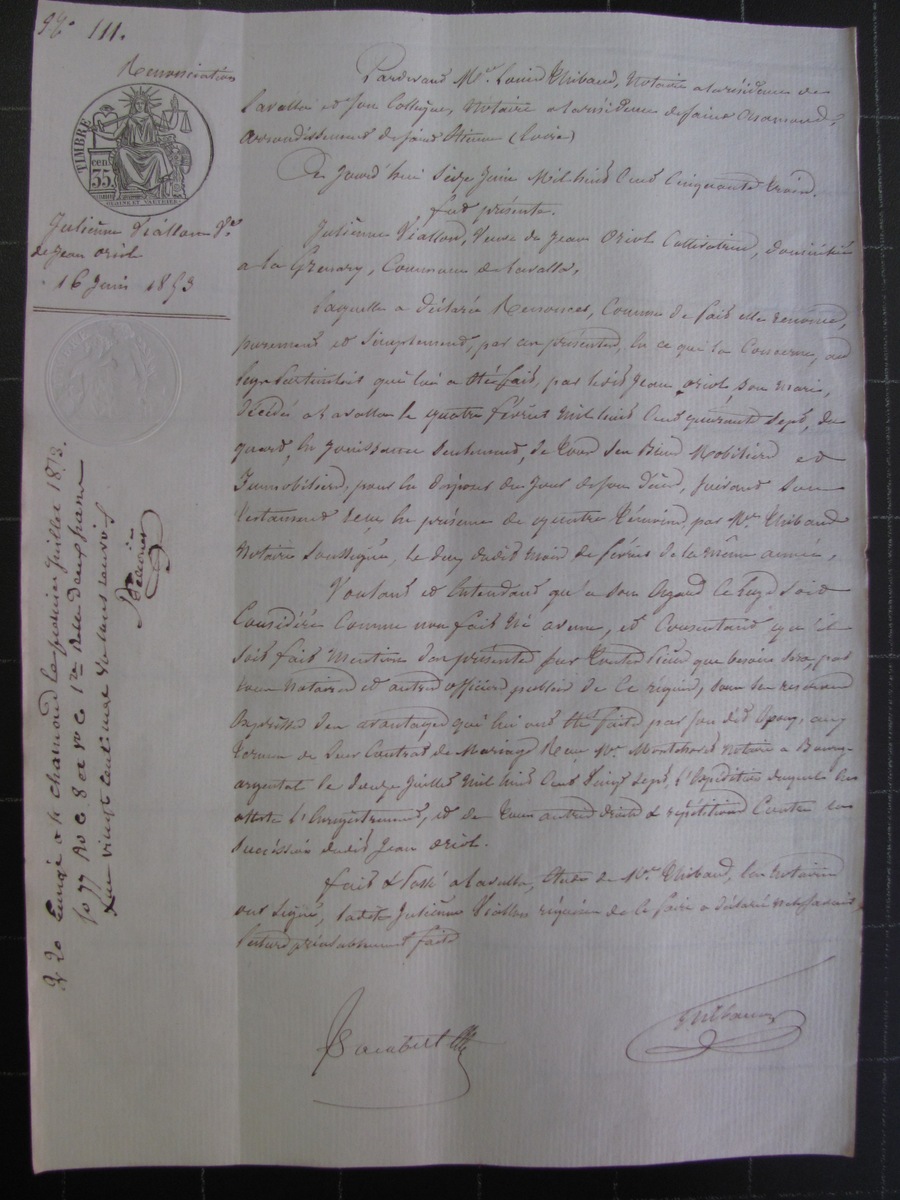 N° 111.
Renonciation
TIMBRE
cen
35
Julienne Viallon Ve
de Jean Oriol
16 Juin 1853
Pardevant Me Louis Thibaud, Notaire a la résidence de
Lavalla et son Collegue, Notaire a la résidence de Saint Chamond,
arrondissement de Saint Etienne (Loire)
Ce Jourd'hui Seize Juin Mil huit Cent Cinquante trois
fut présente.
Julienne Viallon, Veuve de Jean Oriol Cultivatrice, domiciliée
a la Commune de Lavalla,
Laquelle a déclaré Renoncer, Comme de fait elle renonce,
purement et Simplement, par ces présentes, en ce qui la Concerne, au
Legs qui lui a été fait, par ledit Jean Oriol, son mari,
décédé a Lavalla le quatre février mil huit Cent quarante Sept, du
quart, en Jouissance Seulement, de tous Ses Biens Mobiliers et
Immobiliers, pour en Jouir des Jour de son décès, suivant son
testament reçu en présence de quatre témoins, par Me Thibaud
Notaire Soussigné, le deux dudit mois de février de la même année,
Voulant et Entendant qu'a son égard le Legs soit
Considéré Comme non fait ni avenu, et Consentant qu'il
soit fait Mention des présentes sur toutes pièces que besoin sera par
tous Notaires et autres officiers publics de ce requis, sous la réserve
Expresse des avantages qui lui ont été faits par son dit Epoux, aux
termes de leur Contrat de Mariage Reçu Me Notaire a Bourg-
argental le Juillet mil huit Cent Vingt Sept, l'Expédition duquel en
atteste l'Enregistrement, et de tous autres droits & répétitions Contre la
Succession dudit Jean Oriol.
Fait & Passé a Lavalla, Etude de Me Thibaud, les Notaires
ont Signé, ladite Julienne Viallon requise de le faire a déclaré ne le Savoir,
lecture préalablement faite
Thibaud
Engé a St chamond le premier Juillet 1853.
fo 77 Ro C 8 et Vo C 1re Reçu deux francs
vingt centimes